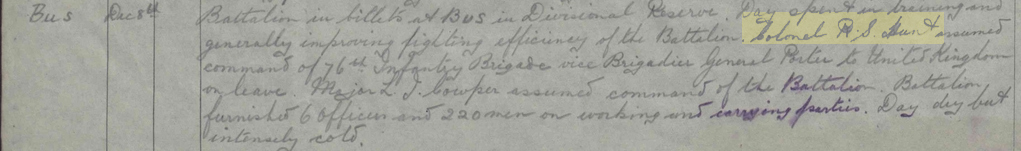 Bus Dec 8th Battalion in billets at Bus in Divisional Reserve. Day spent in training and
generally improving fighting efficiency of the Battalion. Colonel R. S. Hunt assumed
command of 76th Infantry Brigade vice Brigadier General Porter to United Kingdom
on leave. Major L. I. Cowper assumed command of the Battalion. Battalion
furnished 6 Officers and 220 men on working and carrying parties. Day dry but
intensely cold.